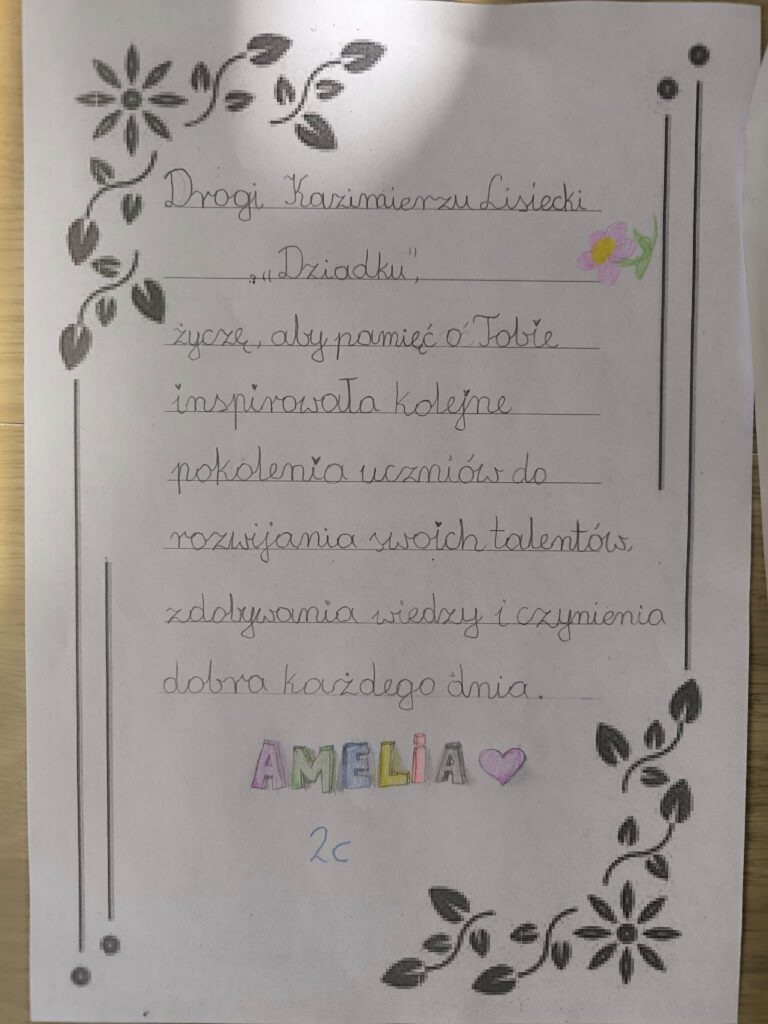 Drogi Kazimierzu Lisiecki
„Dziadku",
życzę, aby pamięć o Tobie
inspirowała kolejne
pokolenia uczniów do
rozwijania swoich talentów,
zdobywania wiedzy i czynienia
dobra każdego dnia.
AMELiA
2c